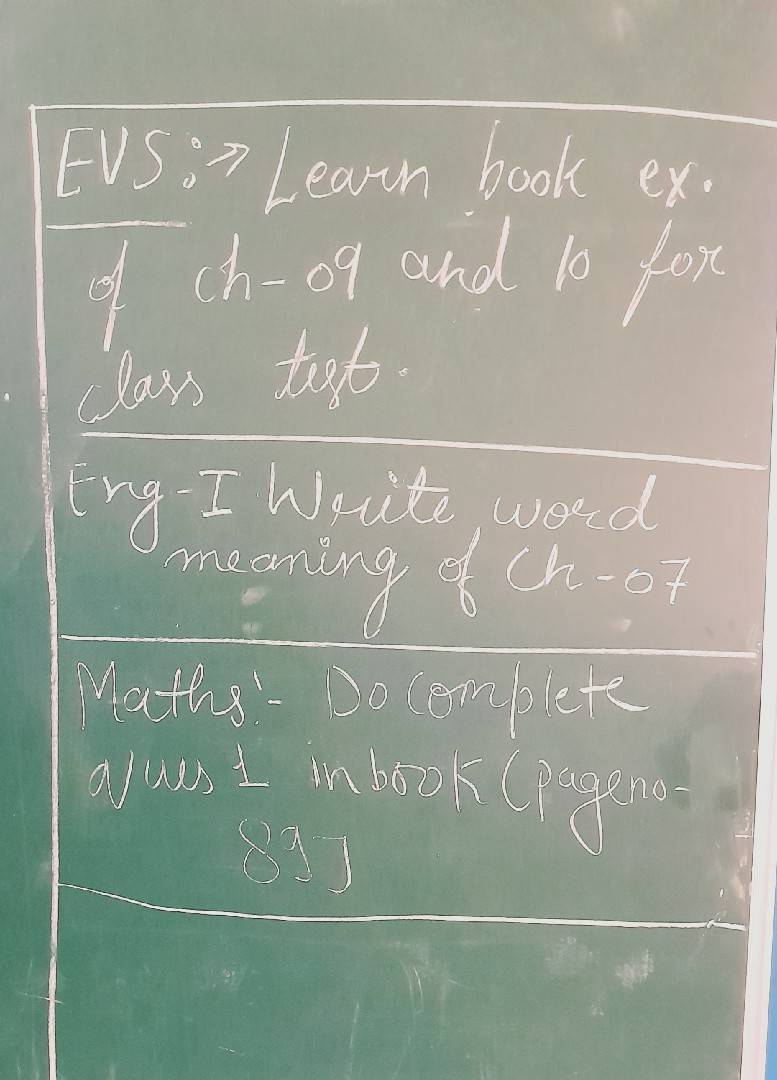 EVS:→ Learn book ex.
of ch-09 and 10 for
class test.
Eng-I Write word
meaning of Ch-07
Maths:- Do complete
Ques 1 in book (page no-
89)